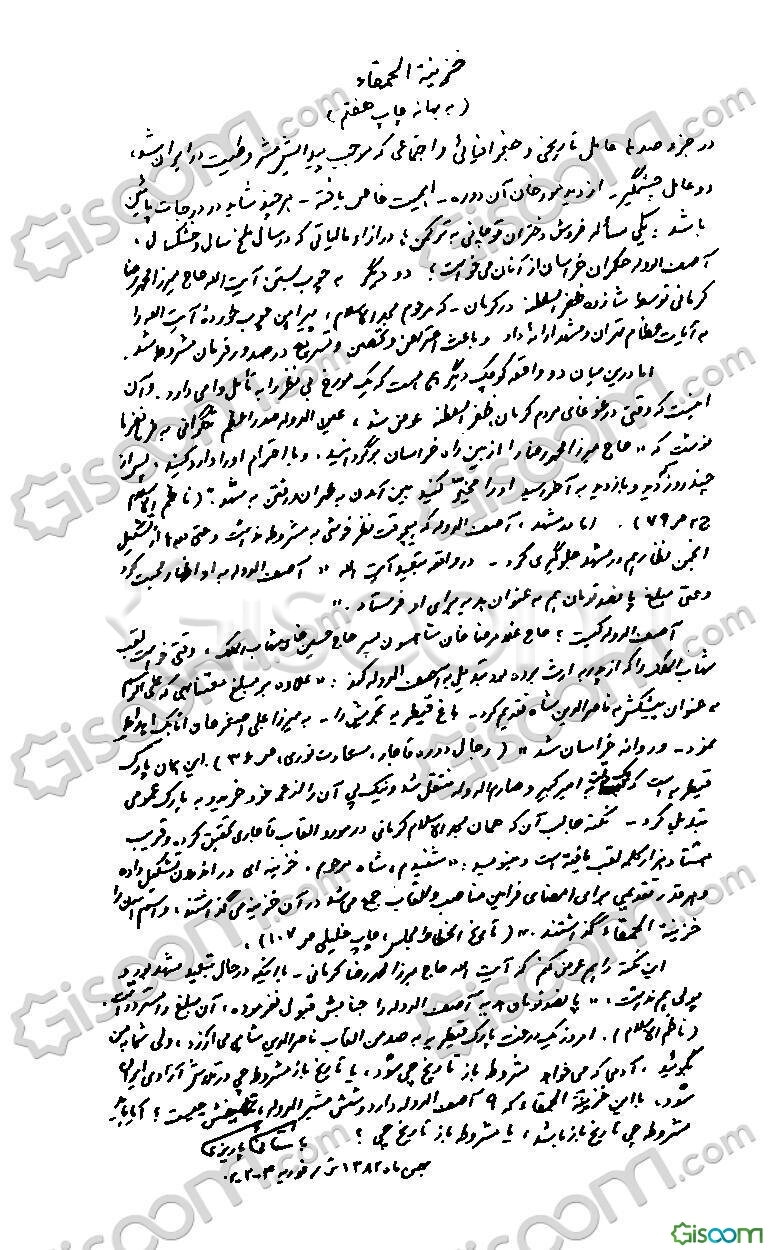 خزینة الحمقاء
(به بهانه چاپ هفتم)
در جزو صدها عامل تاریخی و جغرافیائی و اجتماعی که موجب پیدایش مشروطیت در ایران شد،
دو عامل چشمگیر - از دید مورخان آن دوره - اهمیت خاص یافته - هر چند شاید در درجات پائین
باشد: یکی مسأله فروش دختران قوچانی به ترکمن ها در ازاء مالیاتی که در سال ملخ سال و خشکسالی،
آصف الدوله حکمران خراسان از آنان می خواست؛ دو دیگر به چوب بستن آیت الله حاج میرزا محمدرضا
کرمانی توسط شازده ظفرالسلطنه در کرمان - که مرحوم مجدالاسلام، پیراهن چوب خورده آیت الله را
به آیات عظام تهران و مشهد ارائه داد و باعث اعتراض و تحصن و تسریع در صدور فرمان مشروطه شد.
اما درین میان دو واقعه کوچک دیگر هم هست که یک مورخ بی نظر را به تأمل وا می دارد. و آن
اینست که وقتی در غوغای مردم کرمان ظفرالسلطنه عوض شد، عین الدوله صدراعظم تلگرافی به
نوشت که «حاج میرزا محمدرضا را از بین راه خراسان برگردانید. و با احترام او را وارد کنید و پس از
چند روز که دید و بازدید به آخر رسید او را مخیر کنید بین آمدن به طهران و رفتن به مشهد» (ناظم الاسلام
ج ۲ ص ۷۹). اما در مشهد، آصف الدوله که هیچوقت نظر خوشی به مشروطه نداشت و حتی از تشکیل
انجمن نظار هم در مشهد جلوگیری کرد - در واقعه تبعید آیت الله «آصف الدوله به او اظهار محبت کرد
و حتی مبلغ پانصد تومان هم به عنوان هدیه برای او فرستاد.»
آصف الدوله کیست؟ حاج غلامرضا خان شاهسون پسر حاج حسین خان شهاب الملک، وقتی خواست لقب
شهاب الملک را که از پدر به ارث برده بود تبدیل به آصف الدوله کند: «علاوه بر مبلغ معتنابهی که علی الرسم
به عنوان پیشکش به ناصرالدین شاه تقدیم کرد - باغ قیطریه تجریش را - به میرزا علی اصغر خان اتابک اهدا
نمود - و روانه خراسان شد» (رجال دوره قاجار، سعادت نوری، ص ۳۶). این همان پارک
قیطریه است که به امیرکبیر و صارم الدوله منتقل شد و نیک پی آن را از عمه خود خرید و به پارک عمومی
تبدیل کرد - نکته جالب آن که همان مجدالاسلام کرمانی در مورد القاب قاجاری تحقیق کرده و قریب
هشتاد هزار کلمه لقب یافته است و می نویسد: «شنیدم، شاه مرحوم، خزینه ای در اندرون تشکیل داده
و هر قدر تقدیمی برای امضای فرامین مناصب و القاب جمع می شد در آن خزینه می گذاشتند، و اسم آن را
خزینة الحمقاء گذاشتند.» (تاریخ انحطاط مجلس، چاپ خلیلی ص ۱۰۷).
این نکته را هم عرض کنم که آیت الله حاج میرزا محمدرضا کرمانی - با اینکه در حال تبعید مشهد بود و
پولی هم نداشت، «پانصد تومان هدیه آصف الدوله را جنابش قبول نفرموده، آن مبلغ را مسترد داشت.
(ناظم الاسلام). امروز یک درخت پارک قیطریه به صد من القاب ناصرالدین شاهی می ارزد، ولی شما به من
بگوئید، آدمی که می خواهد مشروطه باز تاریخ چی شود، یا تاریخ باز مشروطه چی در تلاش آزادی ایران
شود، با این خزینة الحمقاء که ۹ آصف الدوله دارد و شش مشیرالدوله، تکلیفش چیست؟ آیا باید
مشروطه چی تاریخ باز باشد، یا مشروطه باز تاریخ چی؟ باستانی پاریزی
بهمن ماه ۱۳۸۲ش / فوریه ۲۰۰۴م.
Giscoom.com
Giscoom